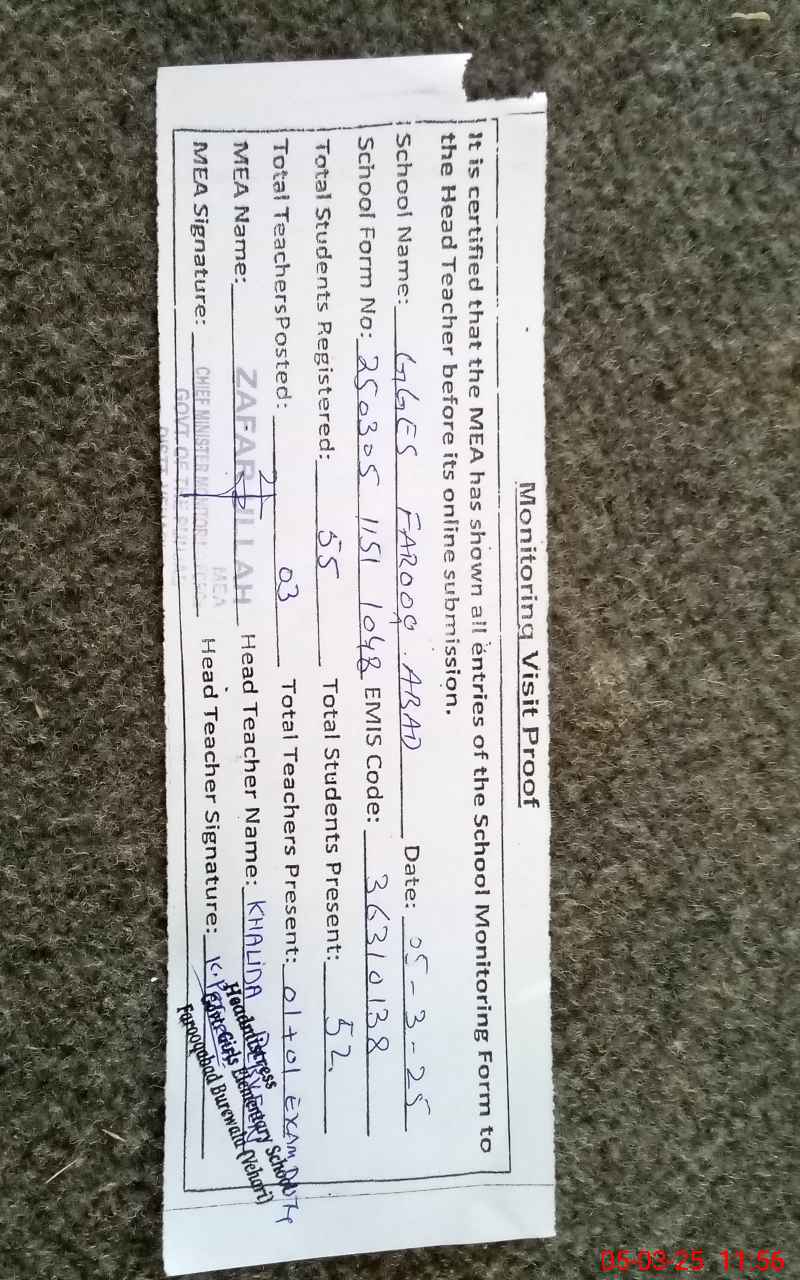 Monitoring Visit Proof
It is certified that the MEA has shown all entries of the School Monitoring Form to
the Head Teacher before its online submission.
School Name: GGES FAROOQ ABAD Date: 05-3-25
School Form No: 250305 1151 1048 EMIS Code: 36310138
Total Students Registered: 55 Total Students Present: 52
Total TeachersPosted: 03 Total Teachers Present: 01+01 EXAM DUTY
MEA Name: ZAFAR ULLAH Head Teacher Name: KHALIDA
MEA
MEA Signature: Head Teacher Signature:
CHIEF MINISTER
GOVT. OF THE
Headmistress
Govt. Girls Elementary School
Farooqabad Burewala (Vehari)
05-03-25 11:56